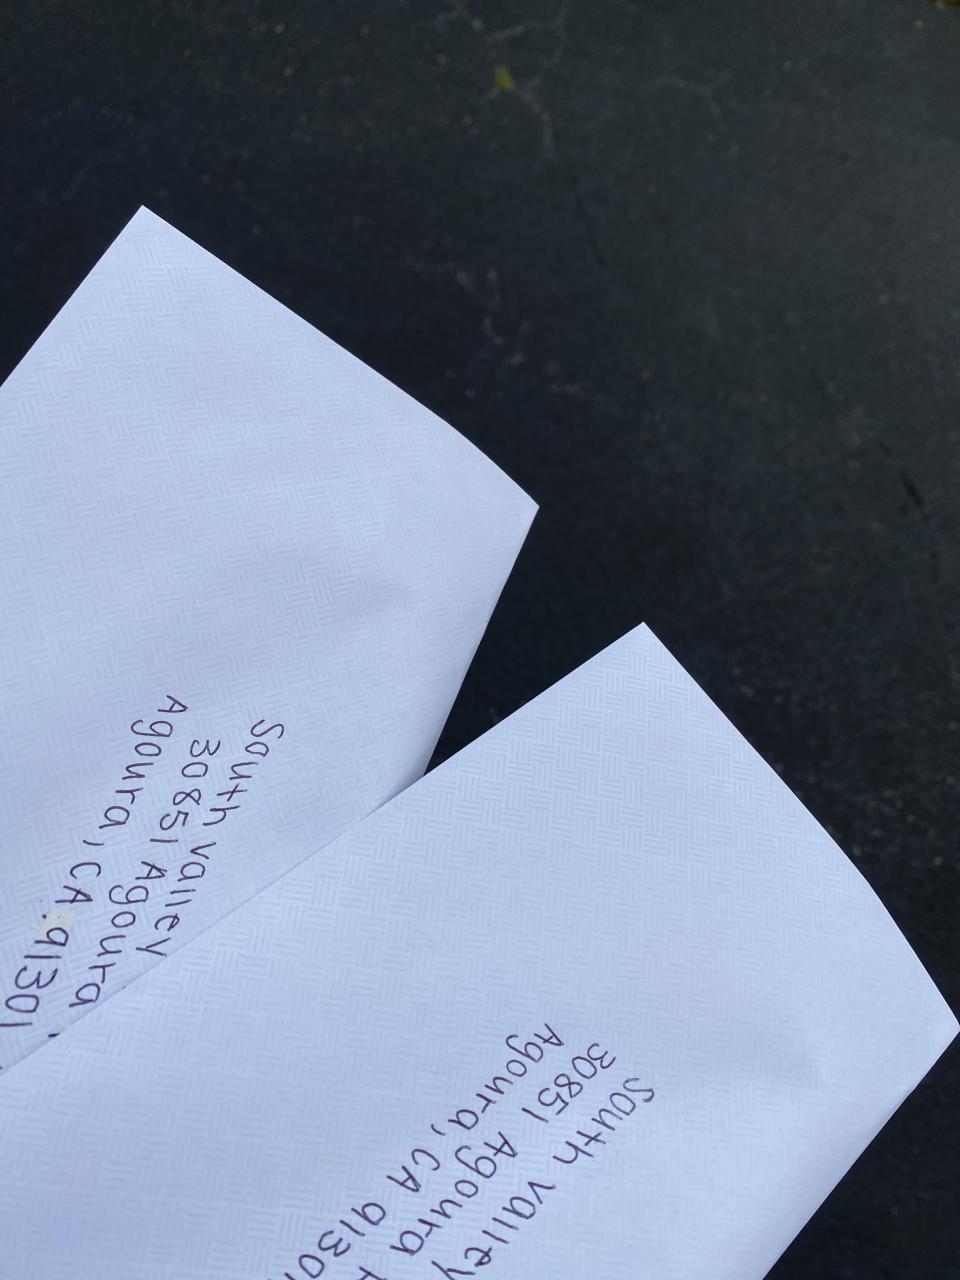 South valley
30851 Agoura
Agoura, CA 91301
South valley
30851 Agoura
Agoura, CA 9130